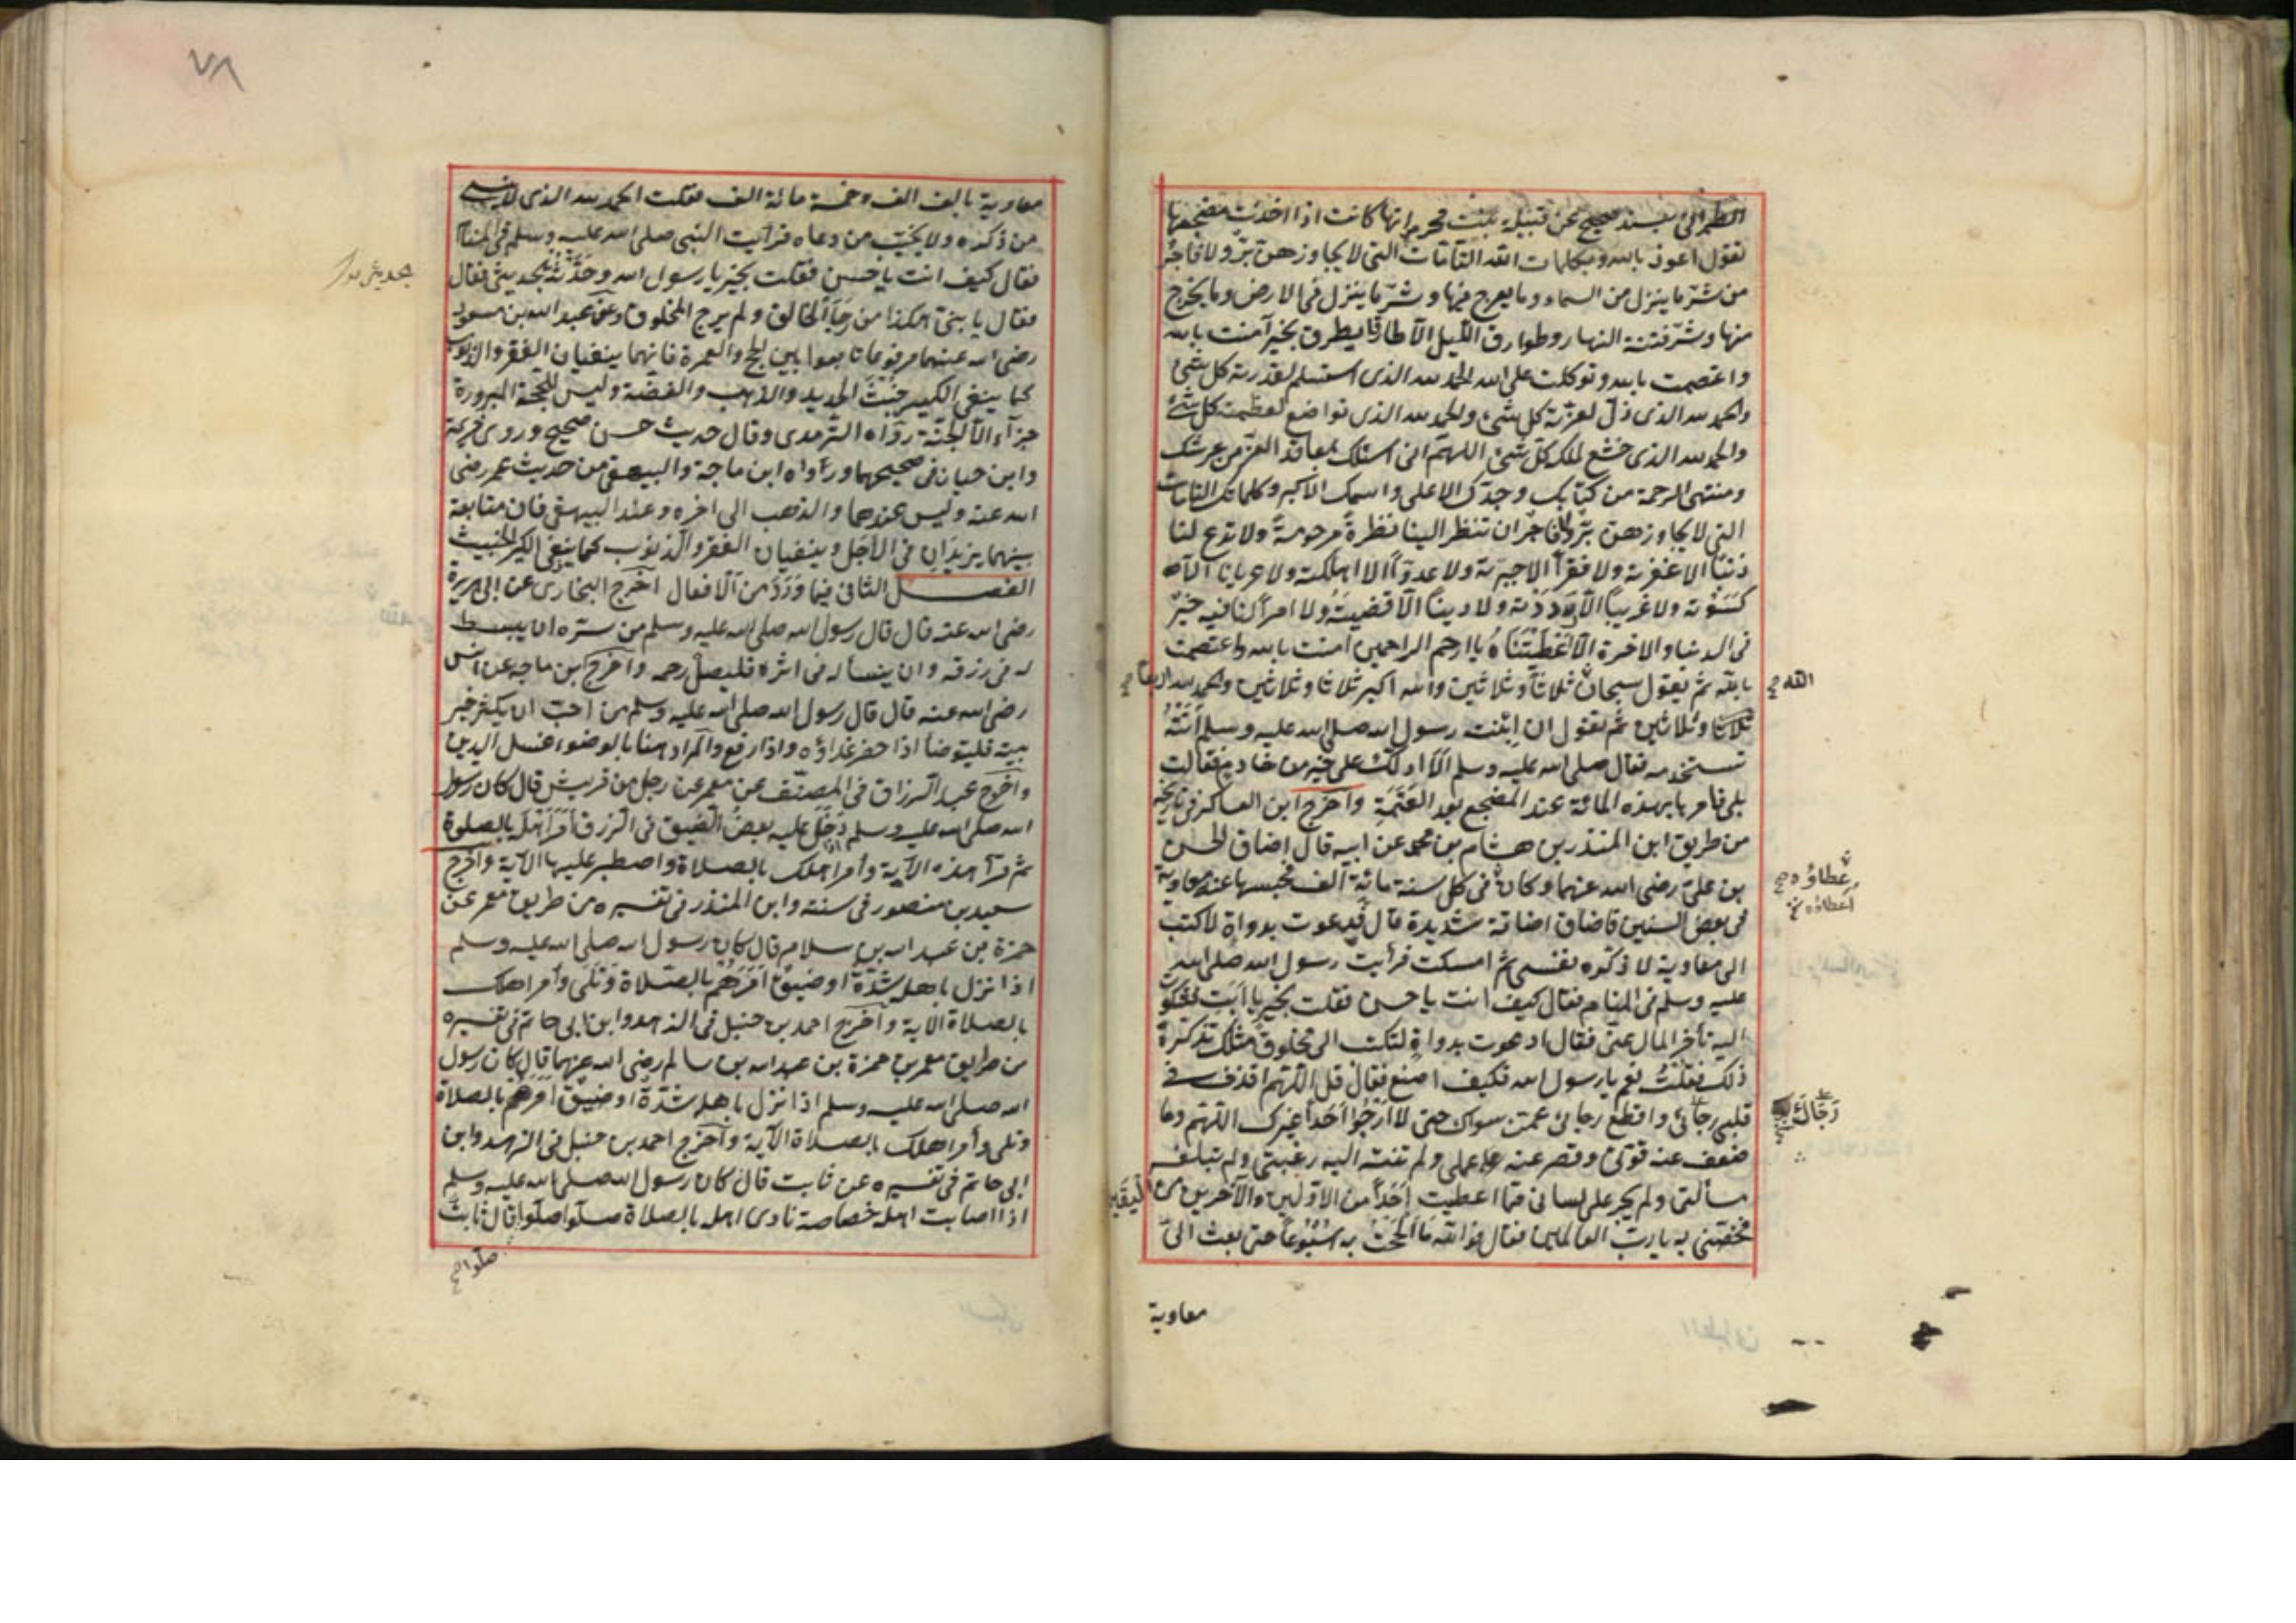 الطبرانى بسند صحيح عن قبيلة بنت محرم انها كانت اذا اخذت مضجعها
تقول اعوذ بالله وبكلمات الله التامات التى لا يجاوزهن بر ولا فاجر
من شر ما ينزل من السماء وما يعرج فيها وشر ما ينزل فى الارض وما يخرج
منها وشر فتنة النهار وطوارق الليل الا طارقا يطرق بخير آمنت بالله
واعتصمت بالله وتوكلت على الله الحمد لله الذى استسلم لقدرته كل شئ
والحمد لله الذى ذل لعزته كل شئ والحمد لله الذى تواضع لعظمته كل شئ
والحمد لله الذى خشع لملكه كل شئ اللهم انى اسئلك بمعاقد العز من عرشك
ومنتهى الرحمة من كتابك وجدك الاعلى واسمك الاكبر وكلماتك التامات
التى لا يجاوزهن بر ولا فاجر ان تنظر الينا نظرة مرحومة ولا تدع لنا
ذنبا الا غفرته ولا فقرا الا جبرته ولا عدوا الا اهلكته ولا عريانا الا
كسوته ولا غريبا الا رددته ولا دينا الا قضيته ولا امرا لنا فيه خير
فى الدنيا والاخرة الا اعطيتناه يا ارحم الراحمين امنت بالله واعتصمت
بالله ثم يقول سبحان ثلاثا وثلاثين والله اكبر ثلاثا وثلاثين والحمد لله اربعا صح
الله صح
ثلاثا وثلاثين ثم تقول ان ابنت رسول الله صلى الله عليه وسلم أتته
تستخدمه فقال صلى الله عليه وسلم الا ادلك على خير من خادم فقالت
بلى فامرها بهذه المائة عند المضجع بعد العتمة واخرج ابن العساكر فى تاريخه
من طريق ابن المنذر بن هشام بن محمد عن ابيه قال اضاق الحسن
بن على رضى الله عنهما وكان فى كل سنة مائة الف فحبسها عنه معاوية
عطاؤه صح
اعطاؤه نخ
فى بعض السنين فاضاق اضاقة شديدة قال فدعوت بدواة لاكتب
الى معاوية لاذكره نفسى ثم امسكت فرأيت رسول الله صلى الله
عليه وسلم فى المنام فقال كيف انت يا حسن فقلت بخير يا ابت
اليه تأخر المال عنى فقال ادعوت بدواة لتكتب الى مخلوق مثلك تذكره
ذلك فقلت نعم يا رسول الله فكيف اصنع فقال قل اللهم اقذف فى
قلبى رجائى واقطع رجائى عمن سواك حتى لا ارجوا احدا غيرك اللهم وما
رجاك
ضعف عنه قوتى وقصر عنه عملى ولم تنته اليه رغبتى ولم تبلغه
مسألتى ولم يجر على لسانى مما اعطيت احدا من الاولين والآخرين من اليقين
فخصنى به يا رب العالمين فقال فوالله ما الححت به اسبوعا حتى بعث الى
معاوية
٧٨
معاوية بالف الف وخمسة مائة الف فقلت الحمد لله الذى لا ينسى
من ذكره ولا يخيب من دعاه فرآيت النبى صلى الله عليه وسلم فى المنام
فقال كيف انت يا حسن فقلت بخير يا رسول الله وحدثته بحديثى فقال
فقال يا بنى هكذا من رجا الخالق ولم يرج المخلوق وعن عبد الله بن مسعود
رضى الله عنهما مرفوعا تابعوا بين الحج والعمرة فانهما ينفيان الفقر والذنوب
كما ينفى الكير خبث الحديد والذهب والفضة وليس للحجة المبرورة
جزآء الا الجنة رواه الترمدى وقال حديث حسن صحيح وروى خزيمة
وابن حبان فى صحيحهما ورواه ابن ماجة والبيهقى من حديث عمر رضى
الله عنه وليس عندهما والذهب الى اخره وعند البيهقى فان متابعة
بينهما يزيدان فى الاجل وينفيان الفقر والذنوب كما ينفى الكير الخبيث
الفصل الثانى فيما ورد من الافعال اخرج البخارى عن ابى هريرة
رضى الله عنه قال قال رسول الله صلى الله عليه وسلم من سره ان يبسط
له فى رزقه وان ينسأ له فى اثره فليصل رحمه واخرج بن ماجه عن انس
رضى الله عنه قال قال رسول الله صلى الله عليه وسلم من احب ان يكثر خير
بيته فليتوضأ اذا حضر غداؤه واذا رفع والمراد هنا بالوضوء غسل اليدين
واخرج عبد الرزاق فى المصنف عن معمر عن رجل من قريش قال كان رسول
الله صلى الله عليه وسلم اذا دخل عليه بعض الضيق فى الرزق امر اهله بالصلوة
ثم قرأ هذه الآية وأمر اهلك بالصلاة واصطبر عليها الآية واخرج
سعيد بن منصور فى سننه وابن المنذر فى تفسيره من طريق معمر عن
حمزة بن عبد الله بن سلام قال كان رسول الله صلى الله عليه وسلم
اذا نزل باهله شدة او ضيق امرهم بالصلاة وتلى وأمر اهلك
بالصلاة الآية وأخرج احمد بن حنبل فى الزهد وابن ابى حاتم فى تفسيره
من طريق معمر بن حمزة بن عبد الله بن سالم رضى الله عنهما قال كان رسول
الله صلى الله عليه وسلم اذا نزل باهله شدة او ضيق امرهم بالصلاة
وتلى وأمر اهلك بالصلاة الآية وأخرج احمد بن حنبل فى الزهد وابن
ابى حاتم فى تفسيره عن ثابت قال كان رسول الله صلى الله عليه وسلم
اذا اصابت اهله خصاصة نادى اهله بالصلاة صلوا صلوا قال ثابت
صلوا صح